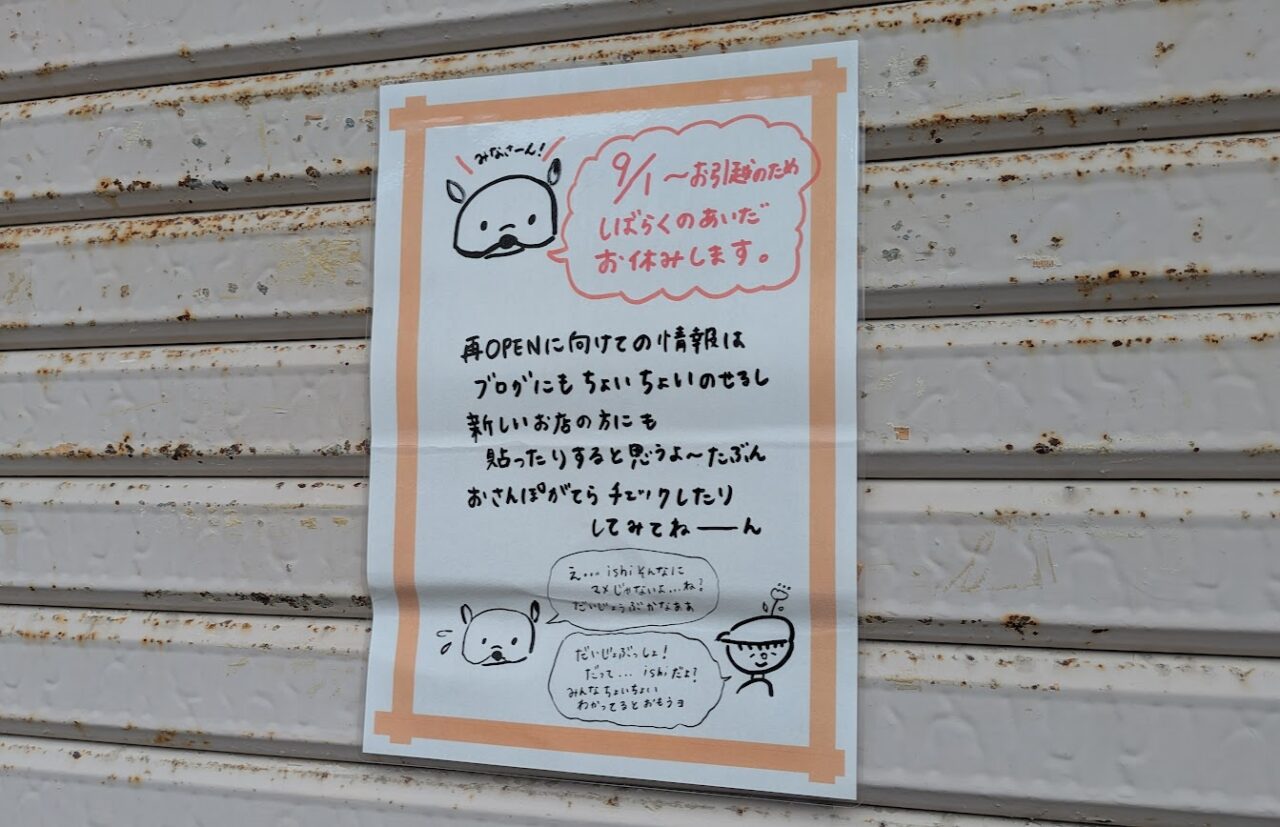 みなさーん!
9/1〜お引越のため
しばらくのあいだ
お休みします。
再OPENに向けての情報は
ブログにもちょいちょいのせるし
新しいお店の方にも
貼ったりすると思うよ〜たぶん
おさんぽがてらチェックしたり
してみてねーーん
え…ishiそんなに
マメじゃないよ…ね?
だいじょうぶかなぁぁ
だいじょぶっしょ!
だって…ishiだよ?
みんなちょいちょい
わかってるとおもうヨ